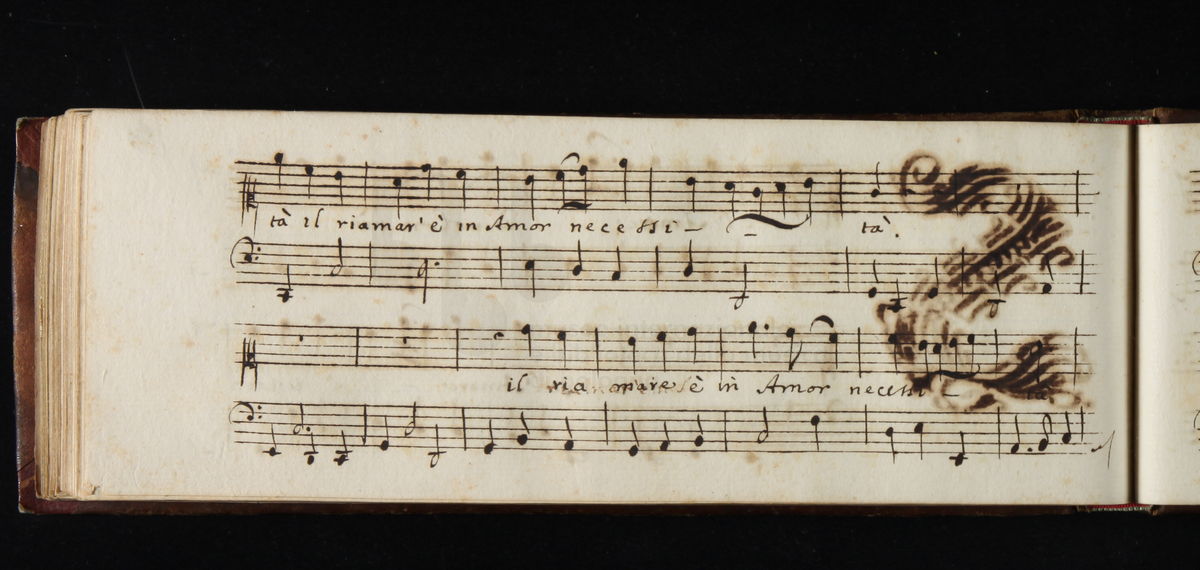 tà il riamar' è in Amor necessi - - tà.
il riamare è in Amor necessi - tà.